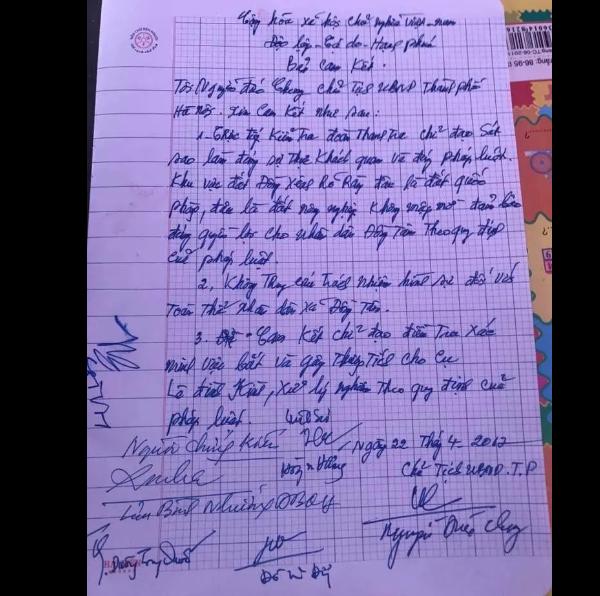 Cộng hòa xã hội chủ nghĩa Việt-nam
Độc lập - Tự do - Hạnh phúc
Bản Cam Kết.
Tôi Nguyễn Đức Chung Chủ tịch UBND Thành phố
Hà Nội. xin Cam Kết như sau:
1. Trực tiếp Kiểm Tra đoàn Thanh Tra chỉ đạo Sát
sao làm đúng sự thật Khách quan và đúng pháp luật.
Khu vực đất Đồng Sênh Rõ Ràng đâu là đất quốc
phòng, đâu là đất nông nghiệp. Không mập mờ đảm bảo
đúng quyền lợi cho nhân dân Đồng Tâm Theo quy định
của pháp luật
2, Không Truy cứu Trách Nhiệm hình sự đối với
Toàn Thể Nhân dân xã Đồng Tâm.
3. Cam Kết chỉ đạo điều Tra Xác
minh việc bắt và gây Thương Tích cho Cụ
Lê Đình Kình, Xử lý Theo quy định của
pháp luật.
Luật Sư
Người Chứng Kiến
Ngày 22 Thg 4. 2017
Chủ Tịch UBND. T.P
Lưu Bình Nhưỡng ĐBQH
Nguyễn Đức Chung
Dương Trung Quốc